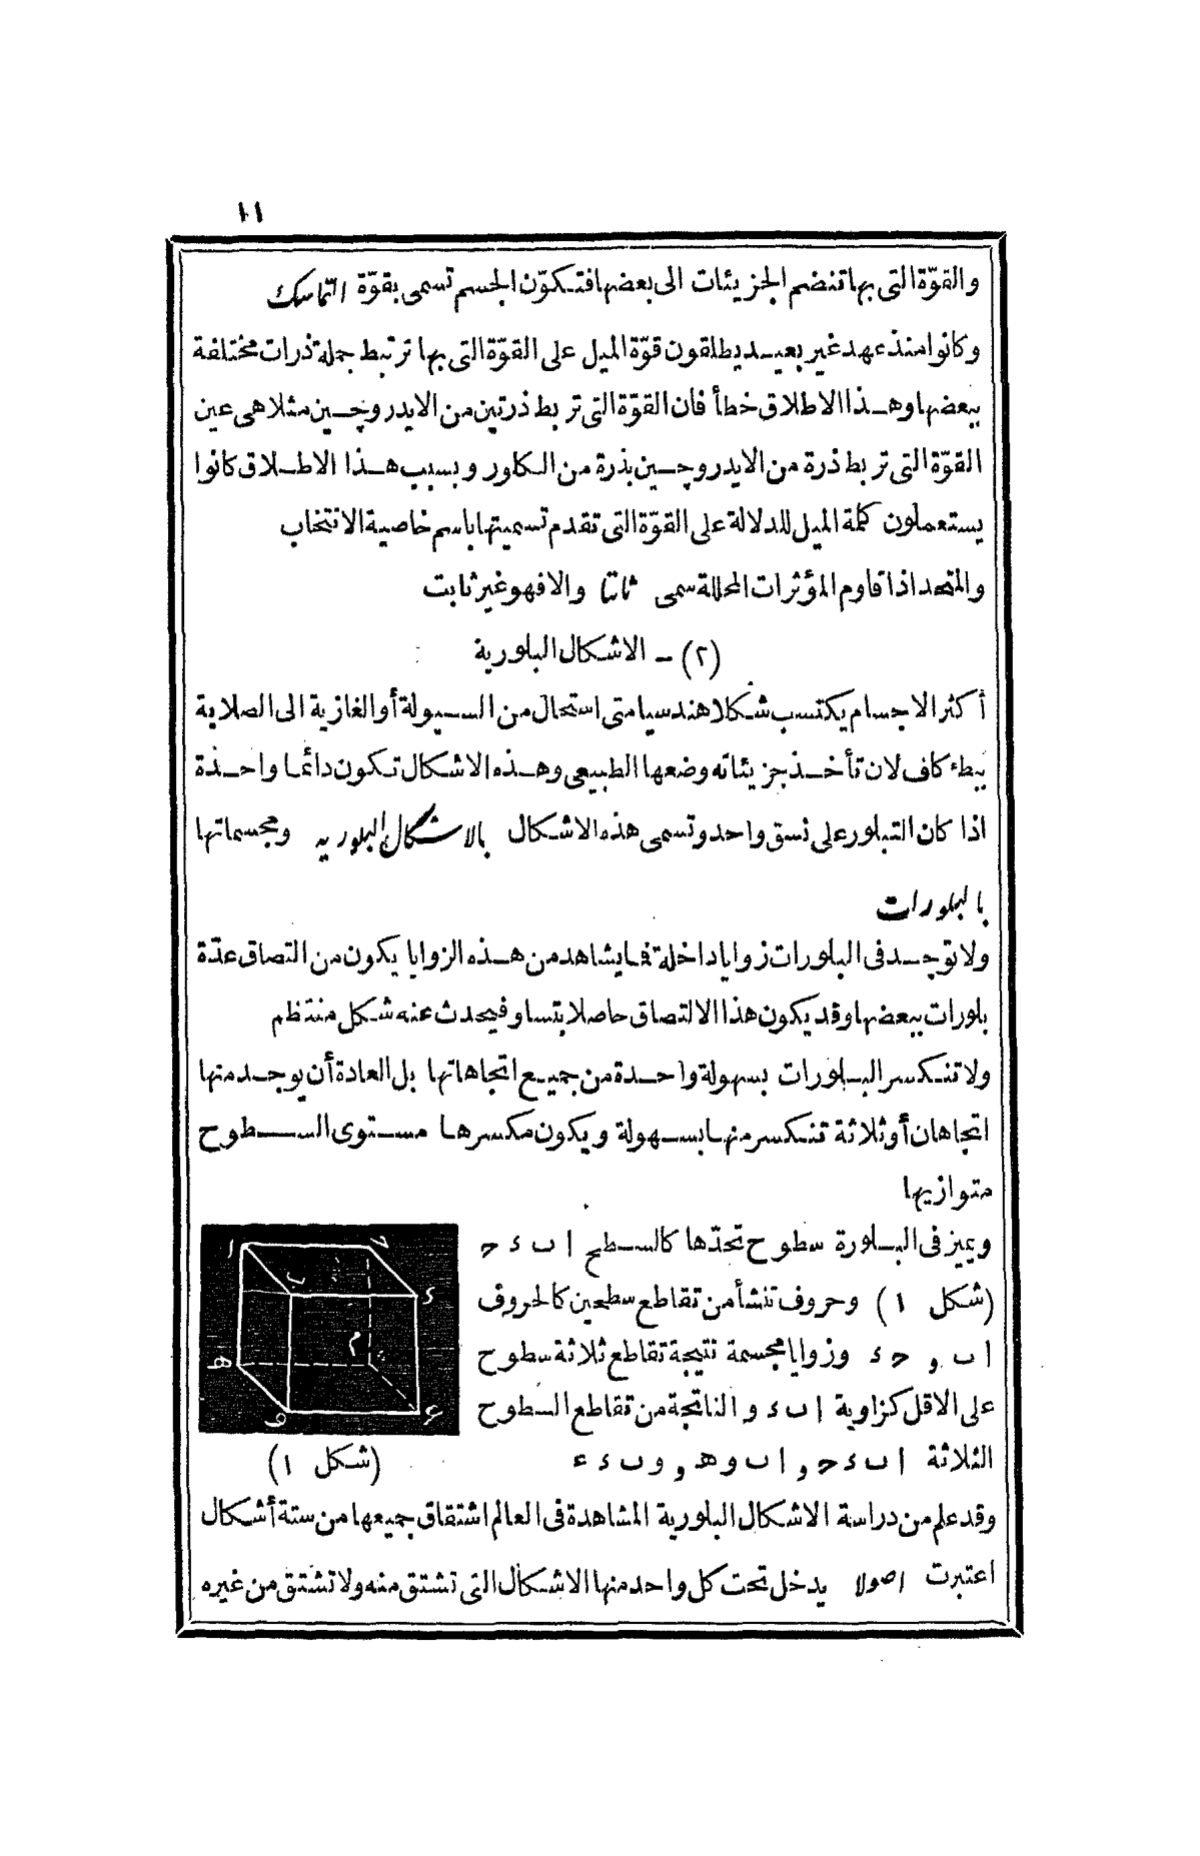 ١١
والقوّة التى بها تنضم الجزيئات الى بعضها فتتكوّن الجسم تسمى بقوّة التماسك
وكانوا منذ عهد غير بعيد يطلقون قوّة الميل على القوّة التى بها ترتبط جملة ذرات مختلفة
ببعضها وهذا الاطلاق خطأ فان القوّة التى تربط ذرتين من الايدروچين مثلا هى عين
القوّة التى تربط ذرة من الايدروچين بذرة من الكلور وبسبب هذا الاطلاق كانوا
يستعملون كلمة الميل للدلالة على القوّة التى تقدم تسميتها باسم خاصية الانتخاب
والمتحد اذا قاوم المؤثرات المحللة سمى ثابتا والا فهو غير ثابت
(٢) – الاشكال البلورية
أكثر الاجسام يكتسب شكلا هندسيا متى استحال من السيولة أو الغازية الى الصلابة
ببطء كاف لان تأخذ جزيئاته وضعها الطبيعى وهذه الاشكال تكون دائما واحدة
اذا كان التبلور على نسق واحد وتسمى هذه الاشكال بالاشكال البلوريه ومجسماتها
بالبلورات
ولا توجد فى البلورات زوايا داخلة فما يشاهد من هذه الزوايا يكون من التصاق عدّة
بلورات ببعضها وقد يكون هذا الالتصاق حاصلا بتساو فيحدث عنه شكل منتظم
ولا تنكسر البلورات بسهولة واحدة من جميع اتجاهاتها بل العادة أن يوجد منها
اتجاهان أو ثلاثة تنكسر منها بسهولة ويكون مكسرها مستوى السطوح
متوازيها
ويميز فى البلورة سطوح تحدّها كالسطح ا ب د ح
(شكل ١) وحروف تنشأ من تقاطع سطحين كالحروف
ا ب و ح د وزوايا مجسمة نتيجة تقاطع ثلاثة سطوح
على الاقل كزاوية ا ب د و الناتجة من تقاطع السطوح
الثلاثة ا ب د ح و ا ب و ه و و ب د ع
ا ح ب د م ه و ع
(شكل ١)
وقد علم من دراسة الاشكال البلورية المشاهدة فى العالم اشتقاق جميعها من ستة أشكال
اعتبرت اصولا يدخل تحت كل واحد منها الاشكال التى تشتق منه ولا تشتق من غيره